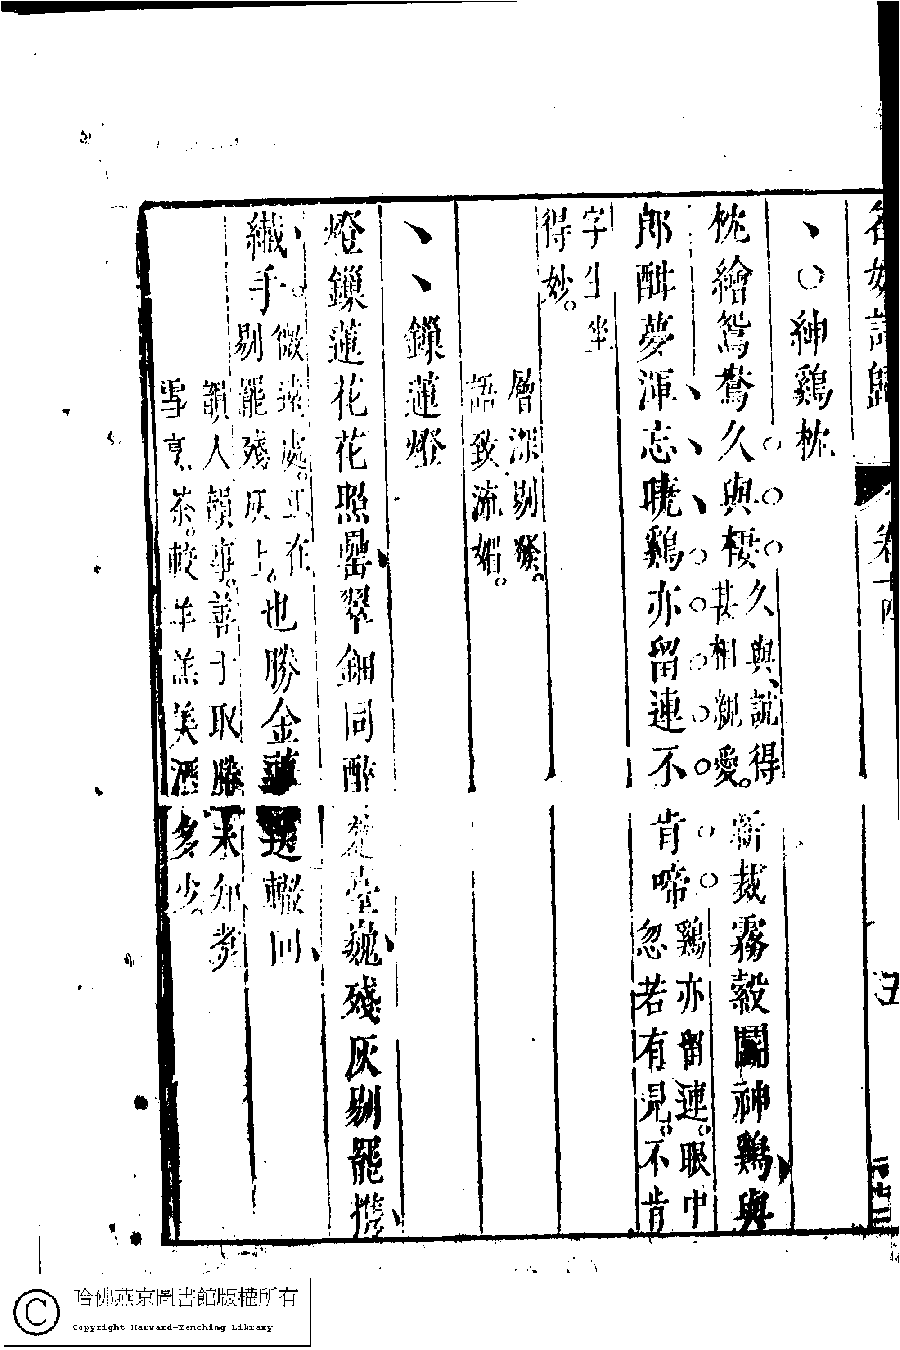 名媛詩歸 卷十四 五
神鷄枕
枕繪鴛鴦久與棲
久與說得
甚相親愛。
新裁霧縠鬭神鷄與
郎酣夢渾忘曉鷄亦留連不肯啼
鷄亦留連。眼中
忽若有見。不肯
字生坐
得妙。
層深剔發。
語致流媚。
鏁蓮燈
燈鏁蓮花花照罍翠鈿同醉楚臺巍殘灰剔罷攜
纖手
微遠處。正在
剔罷殘灰上。
也勝金蓮送輟回
韻人韻事。善于取勝未知煑
雪烹茶。較羊羔美酒多少。
哈佛燕京圖書館版權所有
Copyright Harvard-Yenching Library